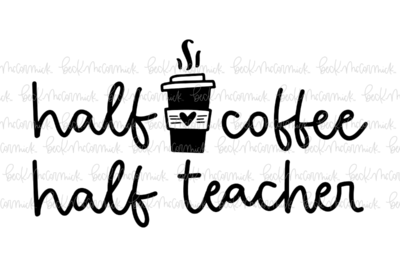 half coffee
half teacher